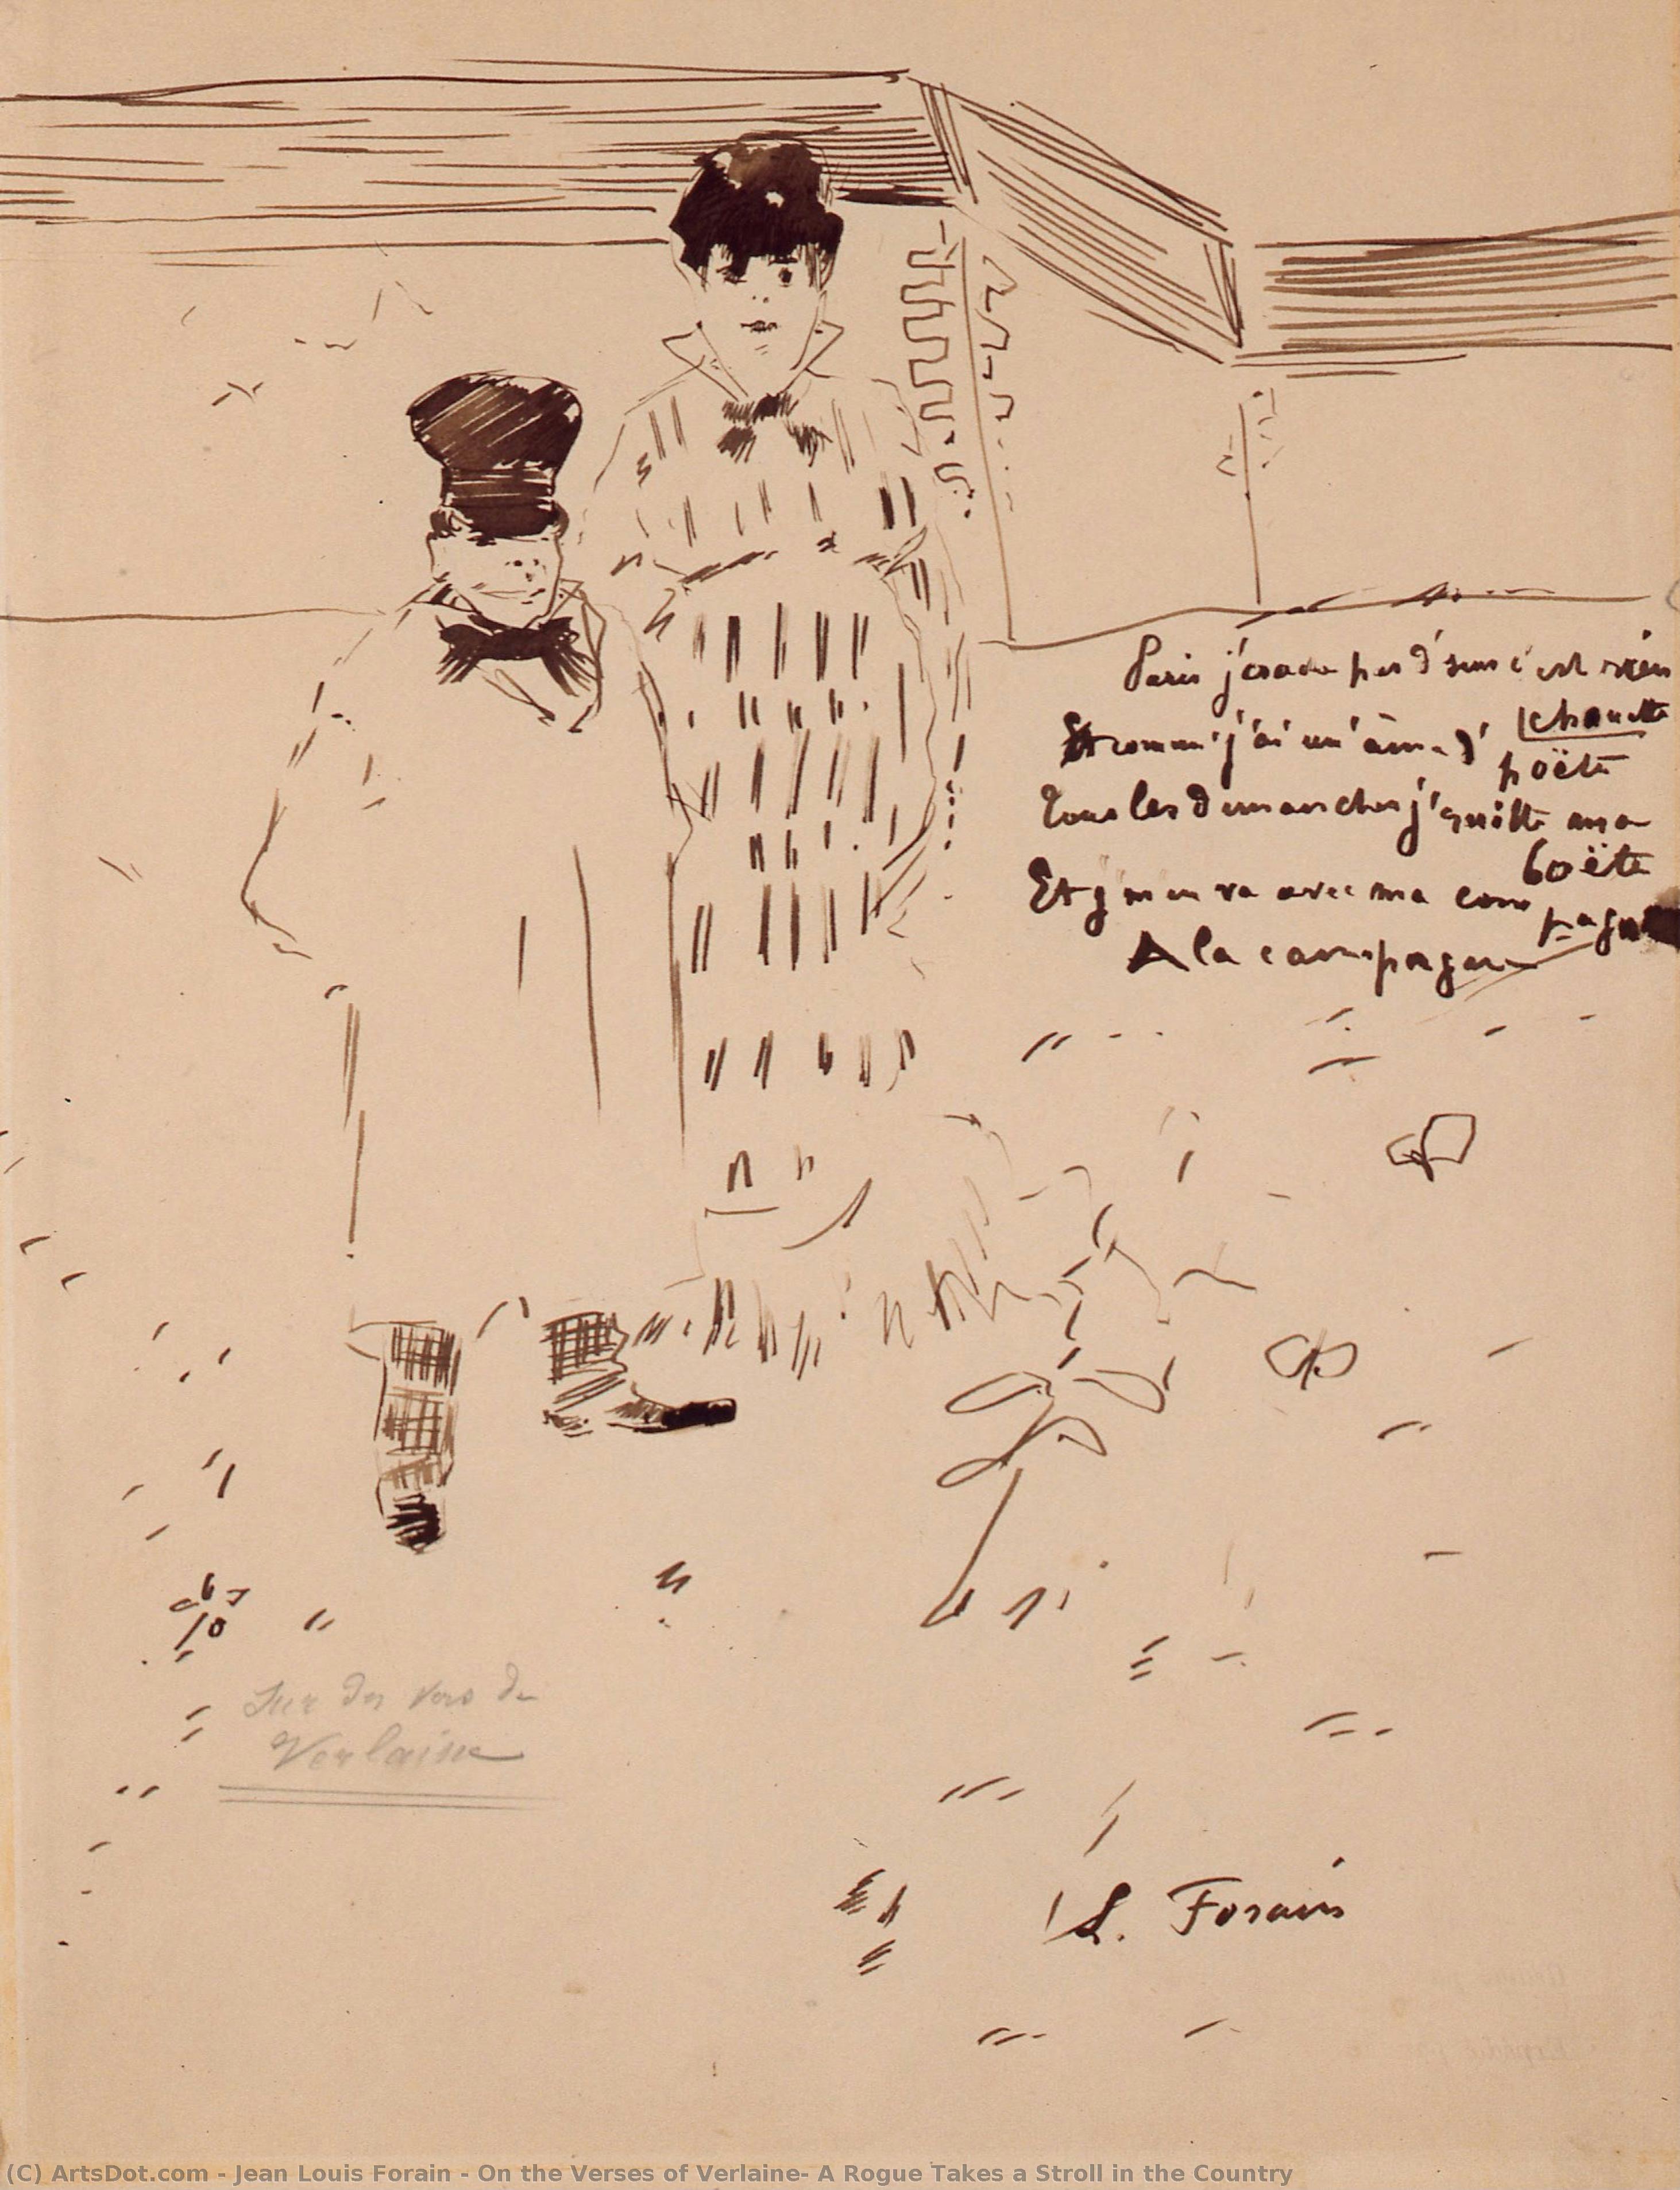 Paris j'crache pas d'sus c'est rien
chouette
Et comm' j'ai un' âme d'
poëte
Tous les dimanches j'quitte ma
boëte
Et j'm'en va avec ma compagne
A la campagne
Sur des vers de
Verlaine
L. Forain
(C) ArtsDot.com - Jean Louis Forain - On the Verses of Verlaine- A Rogue Takes a Stroll in the Country